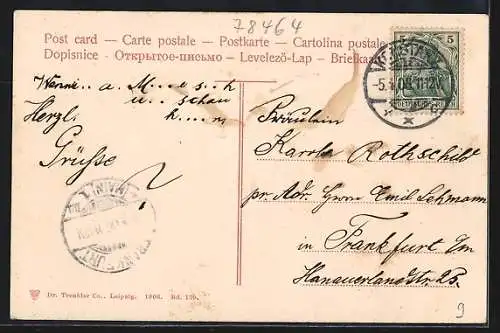 78464
Post card — Carte postale — Postkarte — Cartolina postale
Dopisnice — Открытое-письмо — Levelező-Lap — Briefkaart
5
KONSTANZ
-5. 08. 11-12V.
DEUTSCHES REICH
a. M...e s..h
u... schau
Herzl. k....n
Grüsse
Fräulein
Karola Rothschild
pr. Adr. Herrn Emil Lehmann
in Frankfurt a/m
Hanauerlandstr. 25.
FRANKFURT
(MAIN)
Dr. Trenkler Co., Leipzig. 1906. Bd. 139.
9